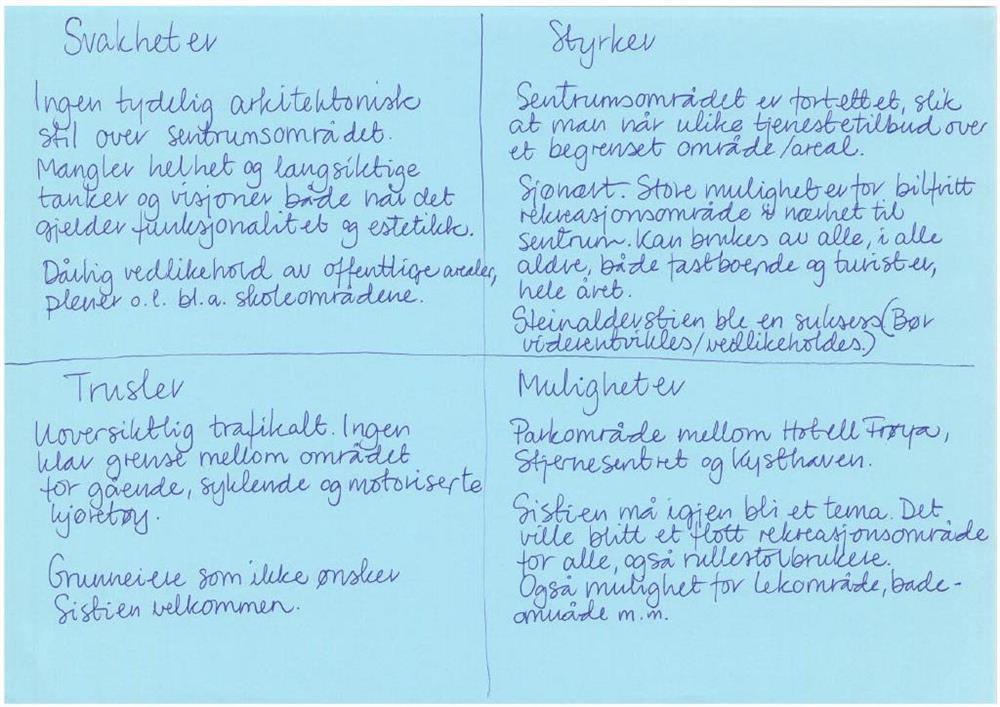 Svakheter
Ingen tydelig arkitektonisk
stil over sentrumsområdet.
Mangler helhet og langsiktige
tanker og visjoner både når det
gjelder funksjonalitet og estetikk.
Dårlig vedlikehold av offentlige arealer,
plener o.l. bl.a. skoleområdene.
Styrker
Sentrumsområdet er fortettet, slik
at man når ulike tjenestetilbud over
et begrenset område/areal.
Sjønært. Store muligheter for bilfritt
rekreasjonsområde i nærhet til
sentrum. Kan brukes av alle, i alle
aldre, både fastboende og turister,
hele året.
Steinalderstien ble en suksess (Bør
viderentvikles/vedlikeholdes.)
Trusler
Uoversiktlig trafikalt. Ingen
klar grense mellom området
for gående, syklende og motoriserte
kjøretøy.
Grunneiere som ikke ønsker
Sistien velkommen.
Muligheter
Parkområde mellom Hotell Frøya,
Stjernesentret og Kysthaven.
Sistien må igjen bli et tema. Det
ville blitt et flott rekreasjonsområde
for alle, også rullestolbrukere.
Også mulighet for lekområde, bade-
område m.m.